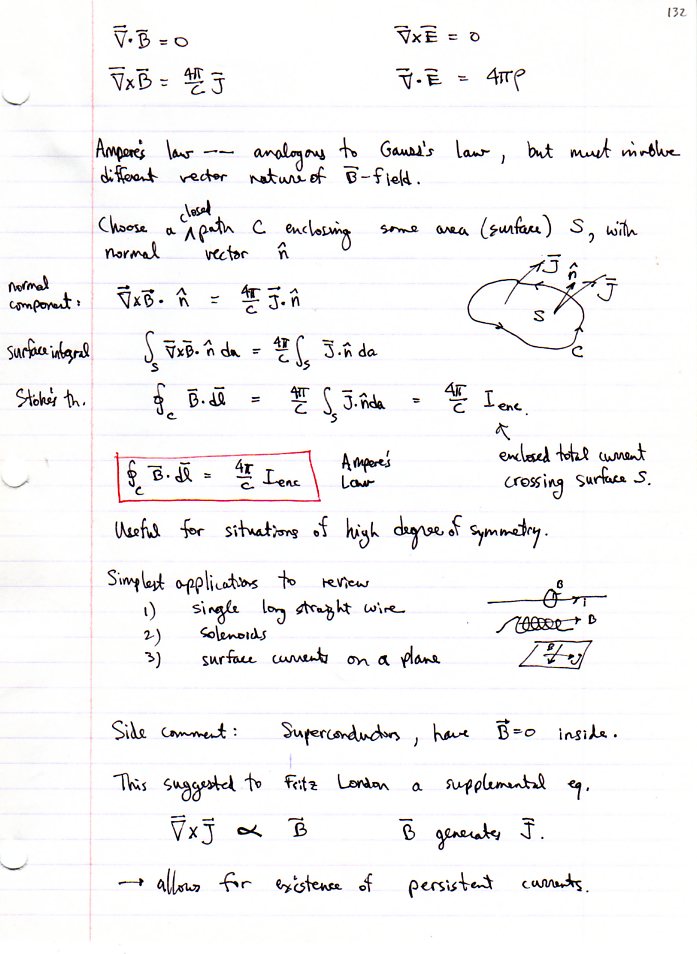 132
∇⃗·B⃗ = 0    ∇⃗×E⃗ = 0
∇⃗×B⃗ = 4π/c J⃗    ∇⃗·E⃗ = 4πρ
Ampere's law -- analogous to Gauss's law, but must involve
different vector nature of B⃗-field.
Choose a closed path C enclosing some area (surface) S, with
normal vector n̂
J⃗ n̂ J⃗
S
C
normal
component: ∇⃗×B⃗· n̂ = 4π/c J⃗·n̂
surface integral ∫_S ∇⃗×B⃗· n̂ da = 4π/c ∫_S J⃗·n̂ da
Stoke's th. ∮_C B⃗·dl⃗ = 4π/c ∫_S J⃗·n̂da = 4π/c I enc.
enclosed total current
crossing surface S.
∮_C B⃗·dl⃗ = 4π/c I enc
Ampere's
Law
Useful for situations of high degree of symmetry.
Simplest applications to review
1) single long straight wire
B I
2) solenoids
B
3) surface currents on a plane
B J
Side comment: Superconductors, have B⃗=0 inside.
This suggested to Fritz London a supplemental eq.
∇⃗×J⃗ ∝ B⃗    B⃗ generates J⃗.
→ allows for existence of persistent currents.